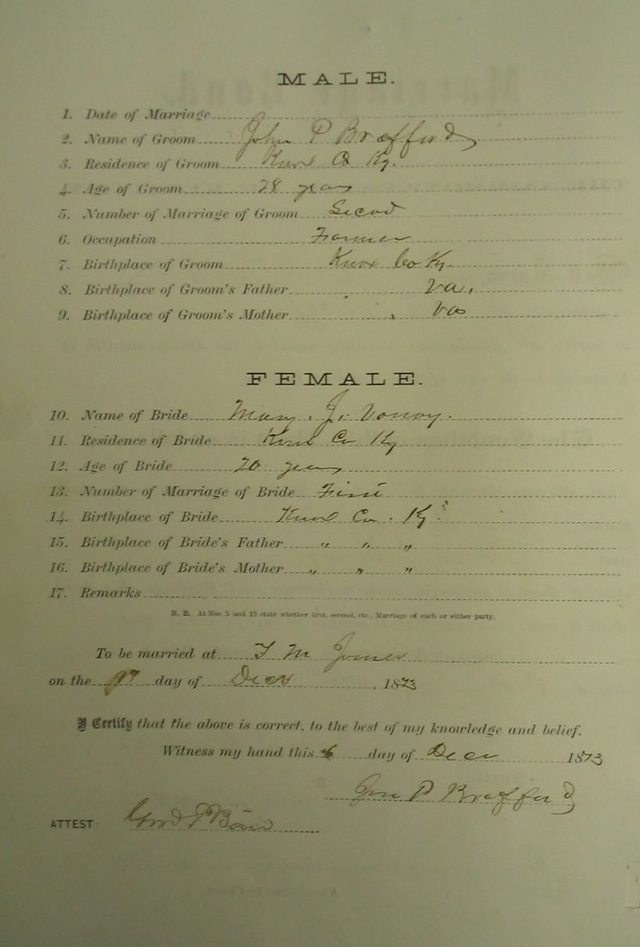 MALE.
1. Date of Marriage
2. Name of Groom John P Brafford
3. Residence of Groom Knox Co Ky.
4. Age of Groom 28 years
5. Number of Marriage of Groom Secod
6. Occupation Farmer
7. Birthplace of Groom Knox Co Ky
8. Birthplace of Groom's Father Va.
9. Birthplace of Groom's Mother Va
FEMALE.
10. Name of Bride Mary. J.
11. Residence of Bride Knox Co Ky
12. Age of Bride 20 years
13. Number of Marriage of Bride First
14. Birthplace of Bride Knox Co. Ky
15. Birthplace of Bride's Father " " "
16. Birthplace of Bride's Mother " " "
17. Remarks
N. B. At Nos. 5 and 13 state whether first, second, etc., Marriage of each or either party.
To be married at
on the day of Decr , 1873
I Certify that the above is correct, to the best of my knowledge and belief.
Witness my hand this 6 day of Decr 1873
Jno P Brafford
ATTEST